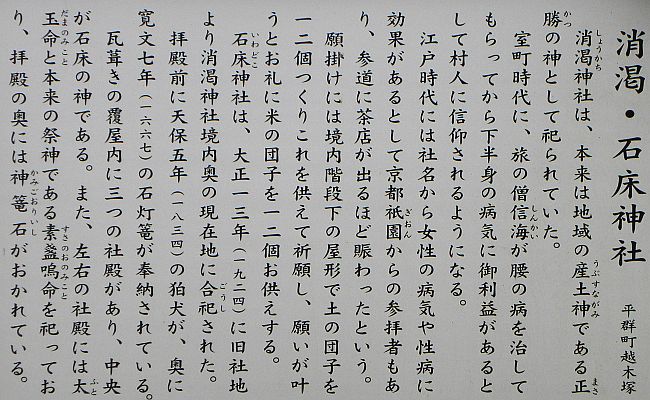 消渇・石床神社
平群町越木塚
消渇神社は、本来は地域の産土神である正
勝の神として祀られていた。
室町時代に、旅の僧信海が腰の病を治して
もらってから下半身の病気に御利益があると
して村人に信仰されるようになる。
江戸時代には社名から女性の病気や性病に
効果があるとして京都祇園からの参拝者もあ
り、参道に茶店が出るほど賑わったという。
願掛けには境内階段下の屋形で土の団子を
一二個つくりこれを供えて祈願し、願いが叶
うとお礼に米の団子を一二個お供えする。
石床神社は、大正一三年（一九二四）に旧社地
より消渇神社境内奥の現在地に合祀された。
拝殿前に天保五年（一八三四）の狛犬が、奥に
寛文七年（一六六七）の石灯篭が奉納されている。
瓦葺きの覆屋内に三つの社殿があり、中央
が石床の神である。また、左右の社殿には太
玉命と本来の祭神である素盞嗚命を祀ってお
り、拝殿の奥には神篭石がおかれている。
しょうかち
うぶすながみ
まさ
かつ
しんかい
ぎおん
いわどこ
ごうし
ふと
だまのみこと
すさのおのみこと
かみごおりいし